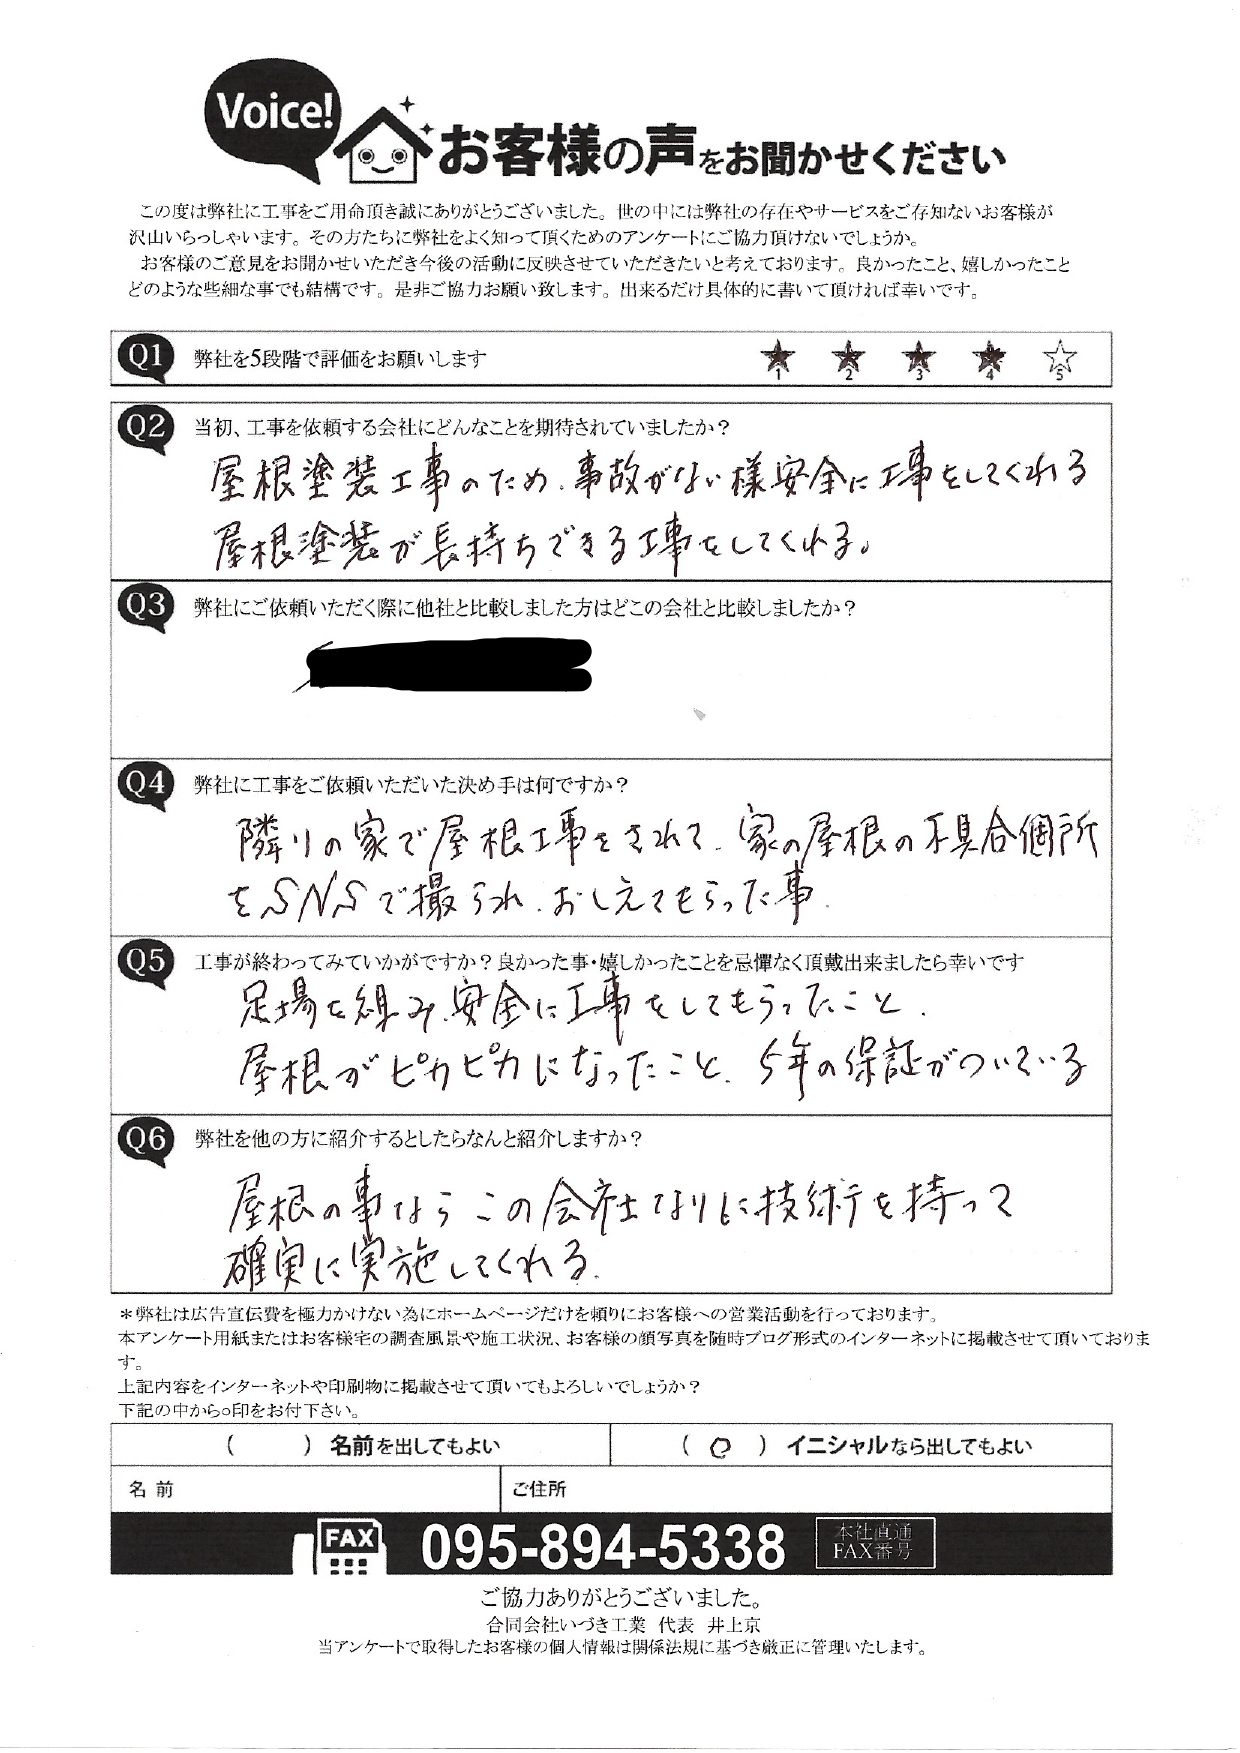 Voice!
お客様の声をお聞かせください
この度は弊社に工事をご用命頂き誠にありがとうございました。世の中には弊社の存在やサービスをご存知ないお客様が
沢山いらっしゃいます。その方たちに弊社をよく知って頂くためのアンケートにご協力頂けないでしょうか。
お客様のご意見をお聞かせいただき今後の活動に反映させていただきたいと考えております。良かったこと、嬉しかったこと
どのような些細な事でも結構です。是非ご協力お願い致します。出来るだけ具体的に書いて頂ければ幸いです。
Q1 弊社を5段階で評価をお願いします ★ ★ ★ ★ ☆
1 2 3 4 5
Q2 当初、工事を依頼する会社にどんなことを期待されていましたか?
屋根塗装工事のため、事故がない様安全に工事をしてくれる
屋根塗装が長持ちできる工事をしてくれる。
Q3 弊社にご依頼いただく際に他社と比較しました方はどこの会社と比較しましたか?
Q4 弊社に工事をご依頼いただいた決め手は何ですか?
隣りの家で屋根工事をされて、家の屋根の不具合個所
をSNSで撮られ、おしえてもらった事.
Q5 工事が終わってみていかがですか?良かった事・嬉しかったことを忌憚なく頂戴出来ましたら幸いです
足場を組み、安全に工事をしてもらったこと.
屋根がピカピカになったこと、5年の保証がついている
Q6 弊社を他の方に紹介するとしたらなんと紹介しますか?
屋根の事ならこの会社なりに技術を持って
確実に実施してくれる.
*弊社は広告宣伝費を極力かけない為にホームページだけを頼りにお客様への営業活動を行っております。
本アンケート用紙またはお客様宅の調査風景や施工状況、お客様の顔写真を随時ブログ形式のインターネットに掲載させて頂いておりま
す。
上記内容をインターネットや印刷物に掲載させて頂いてもよろしいでしょうか?
下記の中から○印をお付下さい。
( ) 名前を出してもよい ( ○ ) イニシャルなら出してもよい
名前 ご住所
FAX 095-894-5338 本社直通
FAX番号
ご協力ありがとうございました。
合同会社いづき工業 代表 井上京
当アンケートで取得したお客様の個人情報は関係法規に基づき厳正に管理いたします。